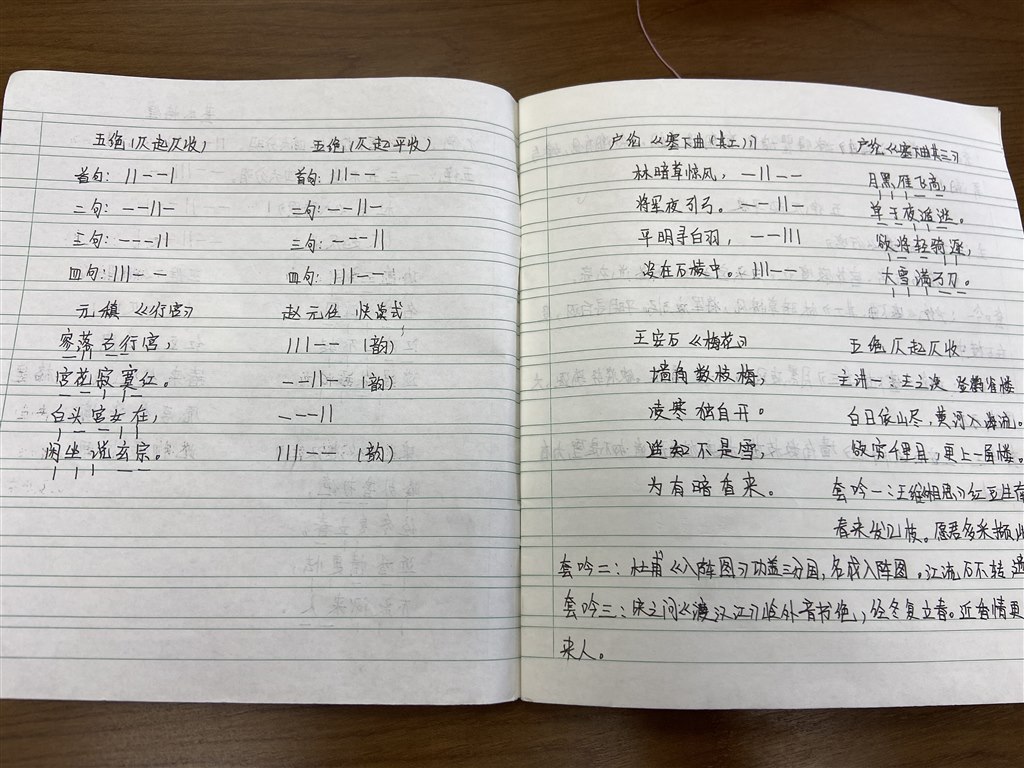 五绝(仄起仄收)
首句: ||——|
二句: ——||—
三句: ———||
四句: |||——
元稹《行宫》
寥落古行宫,
宫花寂寞红。
白头宫女在,
闲坐说玄宗。
五绝(仄起平收)
首句: |||——
二句: ——||—
三句: ———||
四句: |||——
赵元任 快读式
|||—— (韵)
——||— (韵)
———||
|||—— (韵)
卢纶《塞下曲(其二)》
林暗草惊风, —||——
将军夜引弓。 ——||—
平明寻白羽, ——|||
没在石棱中。 |||——
王安石《梅花》
墙角数枝梅,
凌寒独自开。
遥知不是雪,
为有暗香来。
卢纶《塞下曲其三》
月黑雁飞高,
单于夜遁逃。
欲将轻骑逐,
大雪满弓刀。
五绝仄起仄收
主讲一: 王之涣 登鹳雀楼
白日依山尽,黄河入海流。
欲穷千里目,更上一层楼。
套吟一: 王维《相思》红豆生南
春来发几枝。愿君多采撷
套吟二: 杜甫《八阵图》功盖三分国,名成八阵图。江流石不转,遗
套吟三: 宋之问《渡汉江》岭外音书绝,经冬复立春。近乡情更
来人。